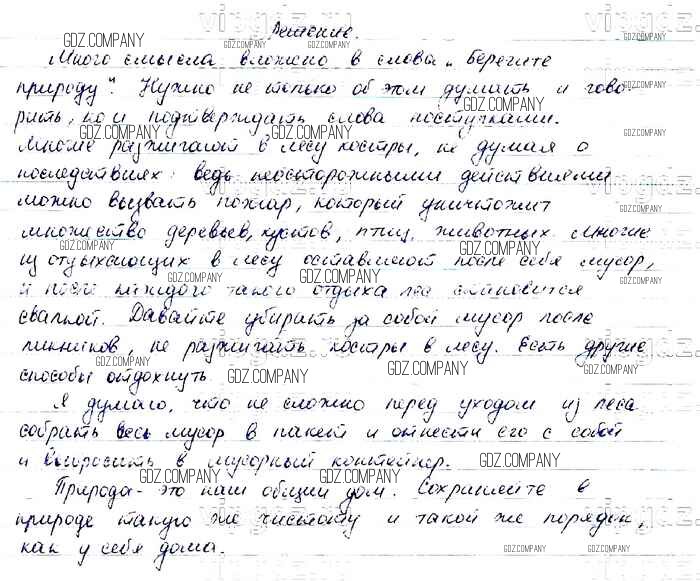 Решение.
Много смысла вложено в слова „Берегите
природу". Нужно не только об этом думать и гово-
рить, но и подтверждать слова поступками.
Многие разжигают в лесу костры, не думая о
последствиях: ведь неосторожными действиями
можно вызвать пожар, который уничтожит
множество деревьев, кустов, птиц, животных. Многие
из отдыхающих в лесу оставляют после себя мусор,
и после каждого такого отдыха лес становится
свалкой. Давайте убирать за собой мусор после
пикников, не разжигать костры в лесу. Есть другие
способы отдохнуть.
Я думаю, что не сложно перед уходом из леса
собрать весь мусор в пакет и отнести его с собой
и выбросить в мусорный контейнер.
Природа - это наш общий дом. Сохраняйте в
природе такую же чистоту и такой же порядок,
как у себя дома.